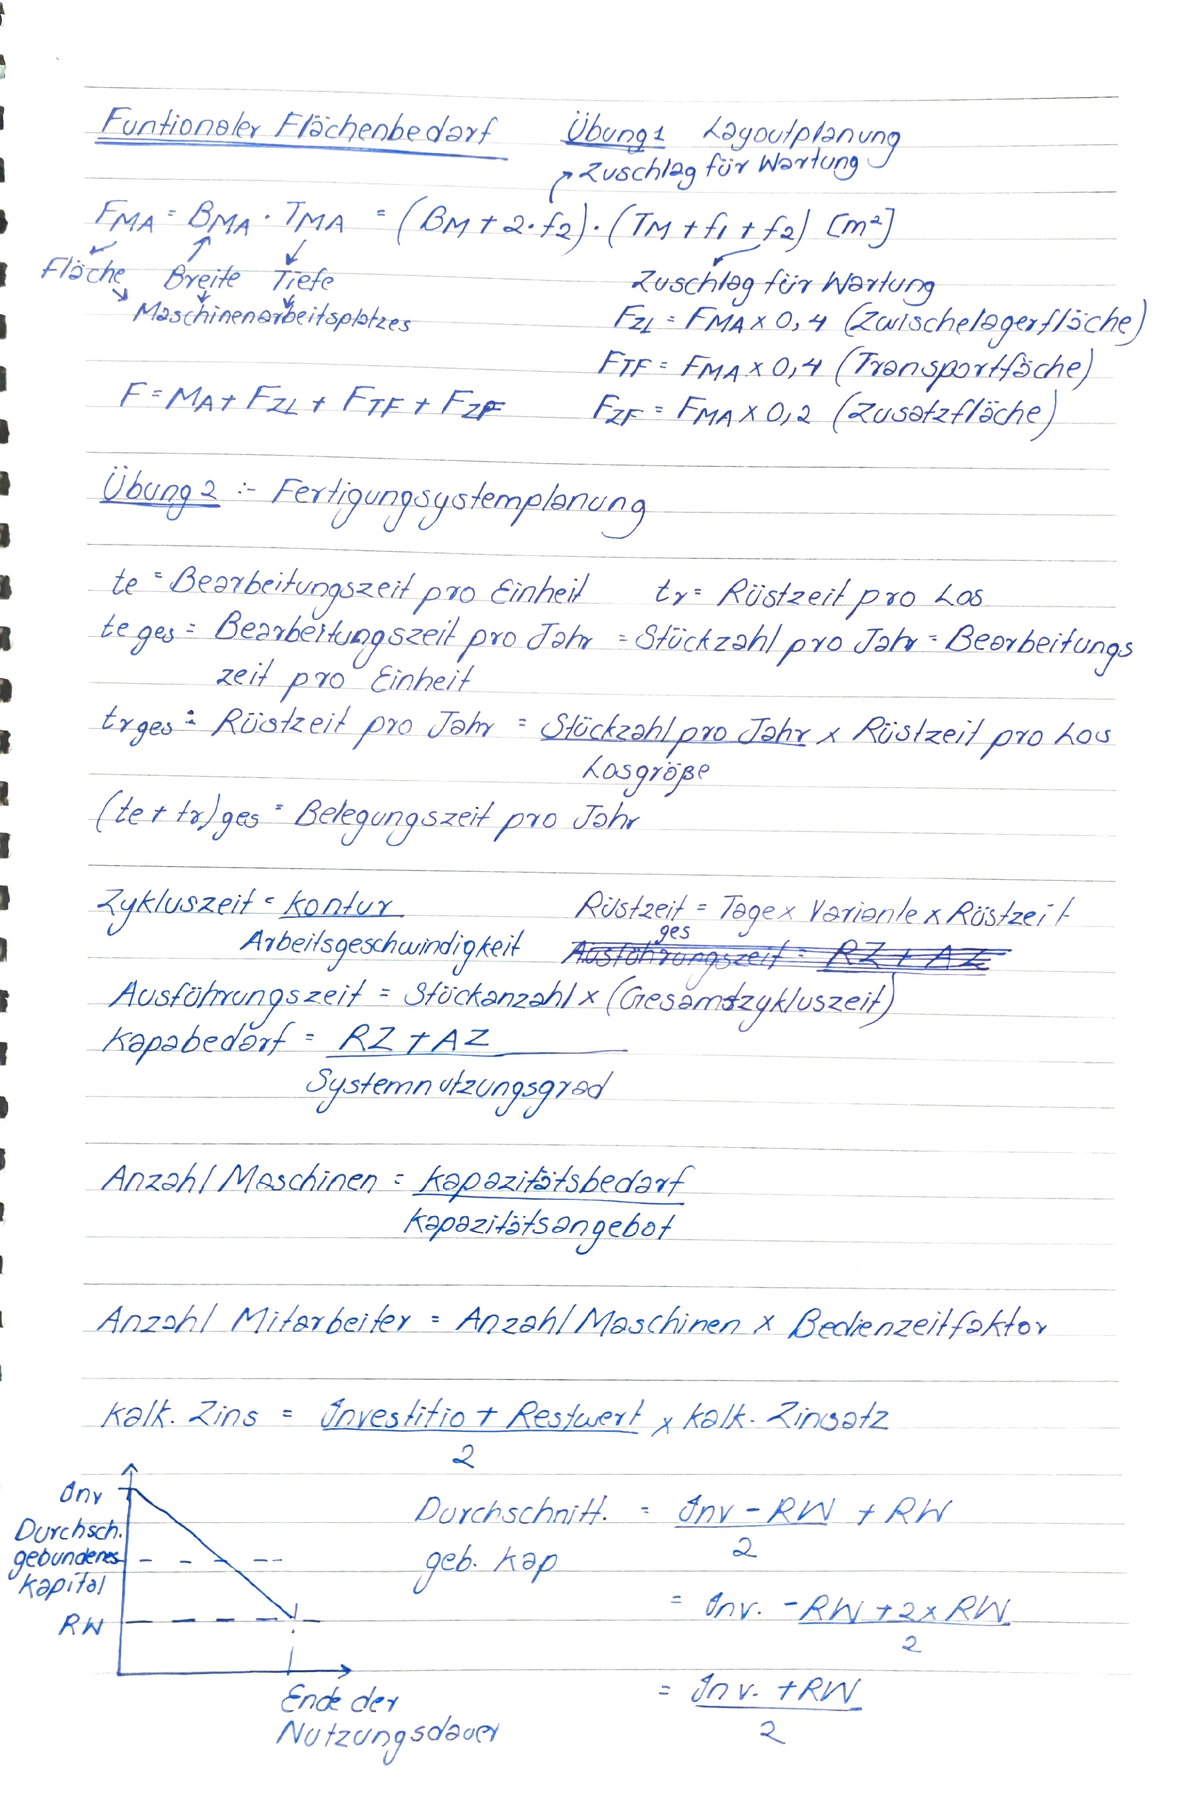 Funtionaler Flächenbedarf Übung 1 Layoutplanung
Zuschlag für Wartung
FMA = BMA · TMA = (BM + 2·f2)·(TM + f1 + f2) [m²]
Fläche Breite Tiefe Zuschlag für Wartung
Maschinenarbeitsplatzes FZL = FMA x 0,4 (Zwischelagerfläche)
FTF = FMA x 0,4 (Transportfäche)
F = MA + FZL + FTF + FZF FZF = FMA x 0,2 (Zusatzfläche)
Übung 2 :- Fertigungsystemplanung
te = Bearbeitungszeit pro Einheit tr = Rüstzeit pro Los
te ges = Bearbeitungszeit pro Jahr = Stückzahl pro Jahr = Bearbeitungs
zeit pro Einheit
tr ges = Rüstzeit pro Jahr = Stückzahl pro Jahr x Rüstzeit pro Los
Losgröße
(te + tr) ges = Belegungszeit pro Jahr
Zykluszeit = Kontur Rüstzeit ges = Tage x Variante x Rüstzeit
Arbeitsgeschwindigkeit Ausführungszeit = RZ + AZ
Ausführungszeit = Stückanzahl x (Gesamtzykluszeit)
Kapabedarf = RZ + AZ
Systemnutzungsgrad
Anzahl Maschinen = Kapazitätsbedarf
Kapazitätsangebot
Anzahl Mitarbeiter = Anzahl Maschinen x Bedienzeitfaktor
Kalk. Zins = Investitio + Restwert x Kalk. Zinsatz
2
Inv Durchschnitt. = Inv - RW + RW
Durchsch. 2
gebundenes geb. Kap
Kapital = Inv. - RW + 2 x RW
RW 2
Ende der = Inv. + RW
Nutzungsdauer 2